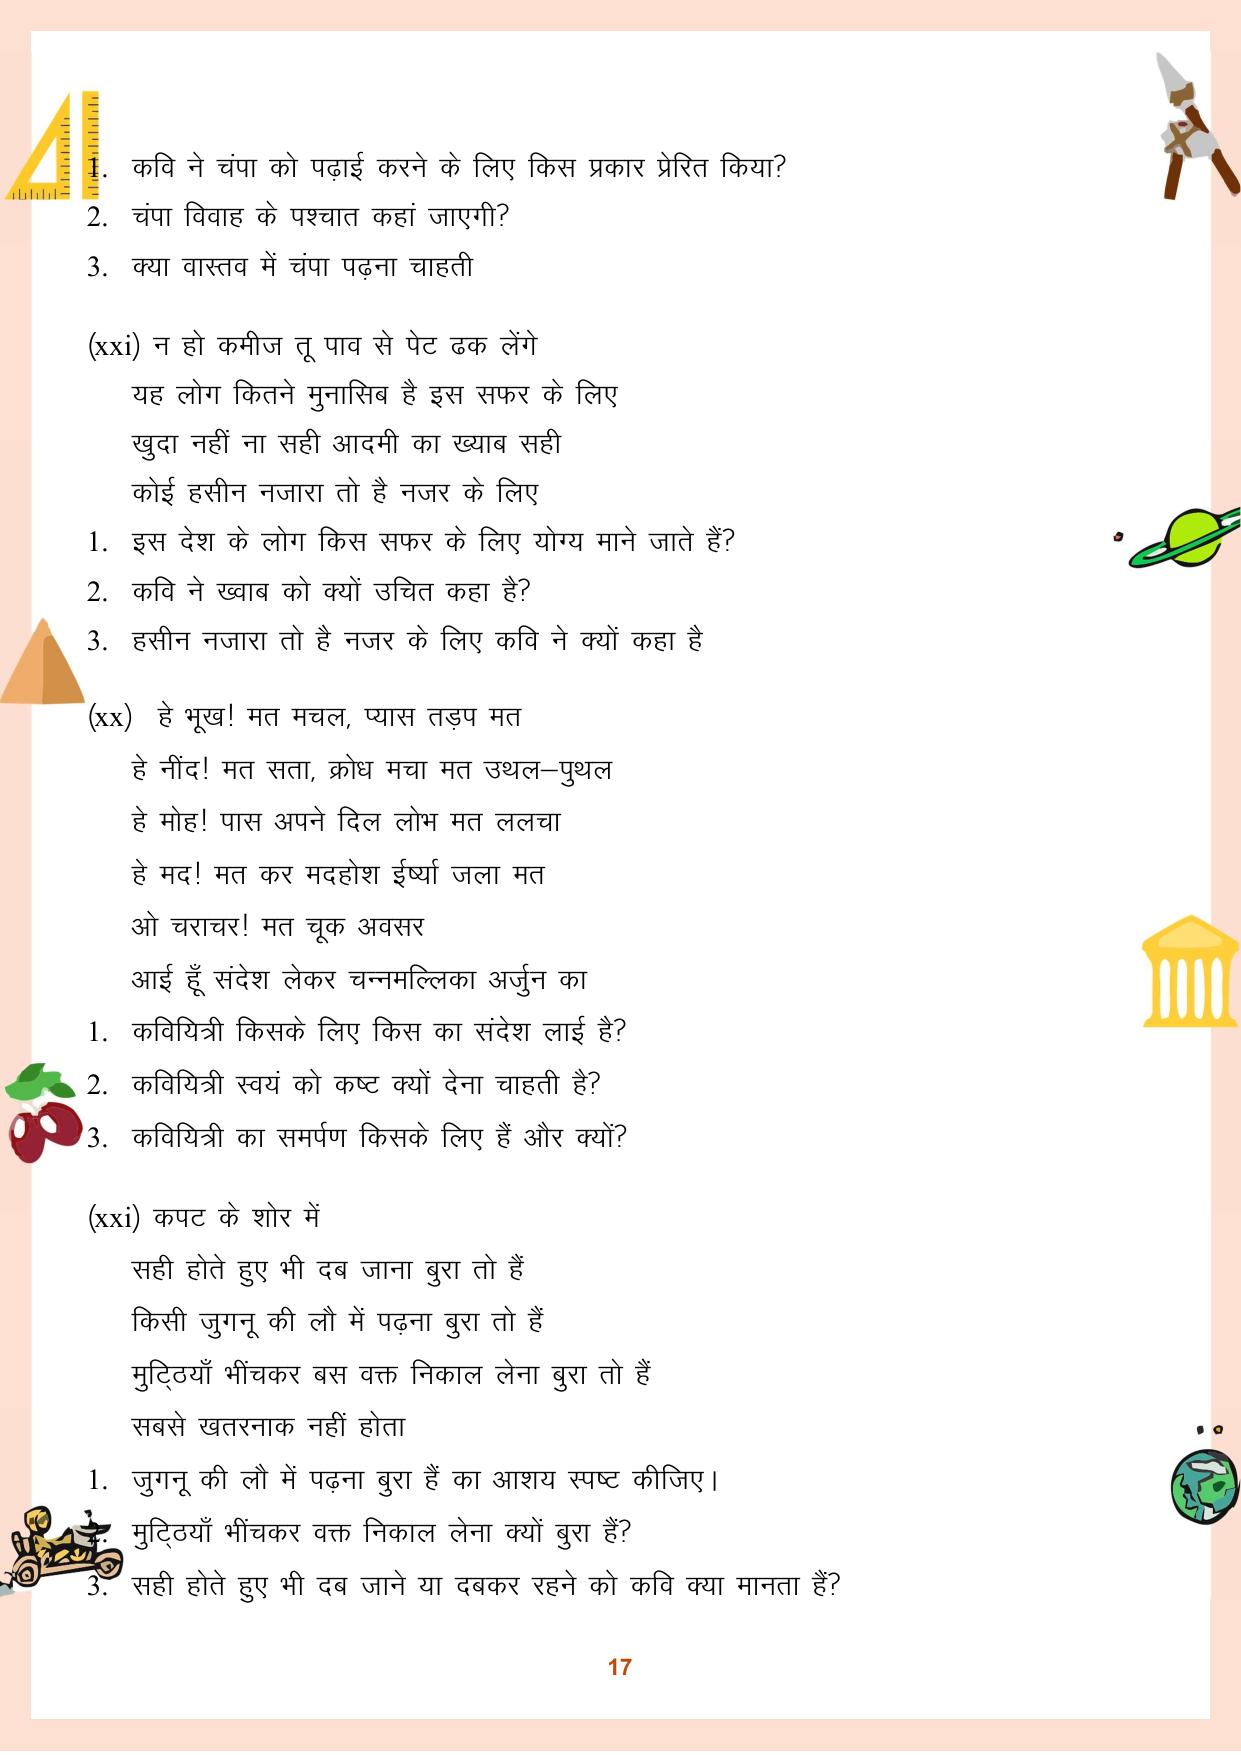 1. कवि ने चंपा को पढ़ाई करने के लिए किस प्रकार प्रेरित किया?
2. चंपा विवाह के पश्चात कहां जाएगी?
3. क्या वास्तव में चंपा पढ़ना चाहती
(xxi) न हो कमीज तू पाव से पेट ढक लेंगे
यह लोग कितने मुनासिब है इस सफर के लिए
खुदा नहीं ना सही आदमी का ख्याब सही
कोई हसीन नजारा तो है नजर के लिए
1. इस देश के लोग किस सफर के लिए योग्य माने जाते हैं?
2. कवि ने ख्वाब को क्यों उचित कहा है?
3. हसीन नजारा तो है नजर के लिए कवि ने क्यों कहा है
(xx) हे भूख! मत मचल, प्यास तड़प मत
हे नींद! मत सता, क्रोध मचा मत उथल–पुथल
हे मोह! पास अपने दिल लोभ मत ललचा
हे मद! मत कर मदहोश ईर्ष्या जला मत
ओ चराचर! मत चूक अवसर
आई हूँ संदेश लेकर चन्नमल्लिका अर्जुन का
1. कवियित्री किसके लिए किस का संदेश लाई है?
2. कवियित्री स्वयं को कष्ट क्यों देना चाहती है?
3. कवियित्री का समर्पण किसके लिए हैं और क्यों?
(xxi) कपट के शोर में
सही होते हुए भी दब जाना बुरा तो हैं
किसी जुगनू की लौ में पढ़ना बुरा तो हैं
मुट्ठियाँ भींचकर बस वक्त निकाल लेना बुरा तो हैं
सबसे खतरनाक नहीं होता
1. जुगनू की लौ में पढ़ना बुरा हैं का आशय स्पष्ट कीजिए।
2. मुट्ठियाँ भींचकर वक्त निकाल लेना क्यों बुरा हैं?
3. सही होते हुए भी दब जाने या दबकर रहने को कवि क्या मानता हैं?
17